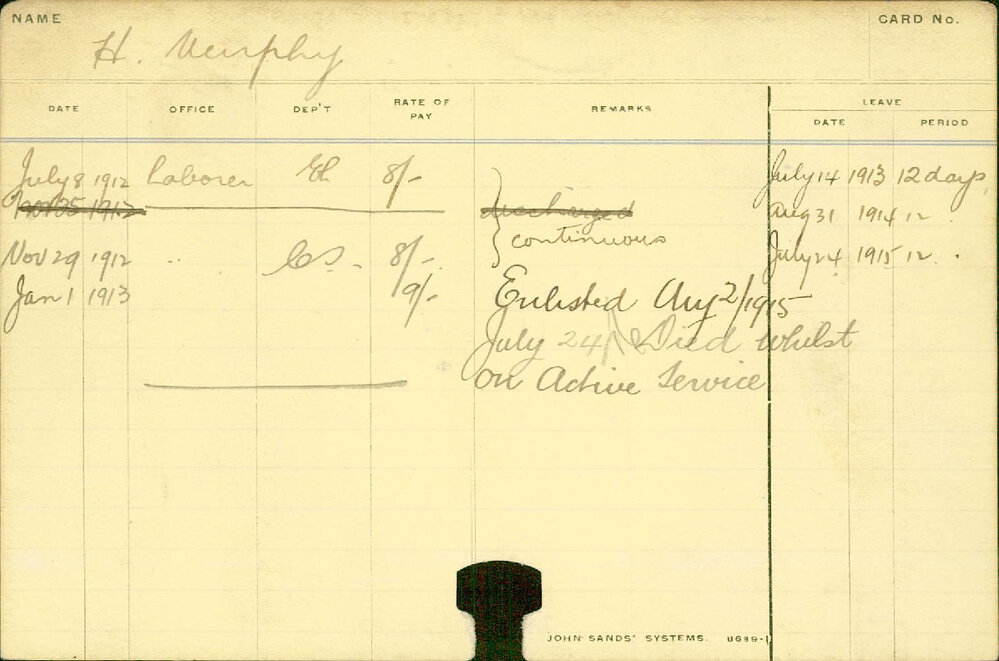 NAME
CARD No.
H. Murphy
DATE OFFICE DEP'T RATE OF PAY REMARKS LEAVE
DATE PERIOD
July 8 1912 Laborer 8/- July 14 1913 12 days
1912 discharged Aug 31 1914 12 "
continuous
Nov 29 1912 " 8/- July 24 1915 12 "
Jan 1 1913 9/- Enlisted Aug 2/1915
July 24/ Died whilst
on Active Service
JOHN SANDS' SYSTEMS.